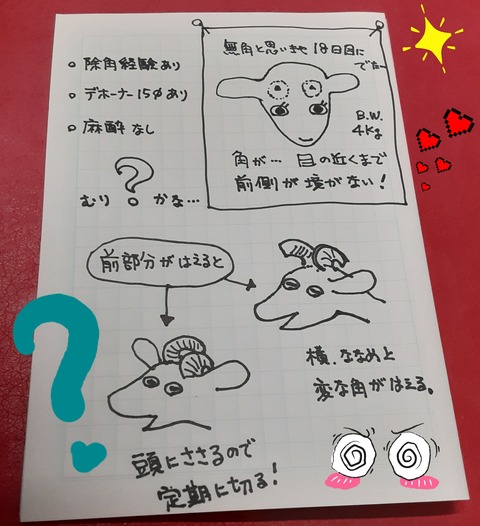 ○ 除角経験あり
○ デホーナー 15φあり
○ 麻酔なし
むり?かな…
無角と思いきや 18日目に
でたー
B.W.
4kg
角が… 目の近くまで
前側が境がない!
前部分がはえると
横.ななめと
変な角がはえる。
頭にささるので
定期に切る!
?